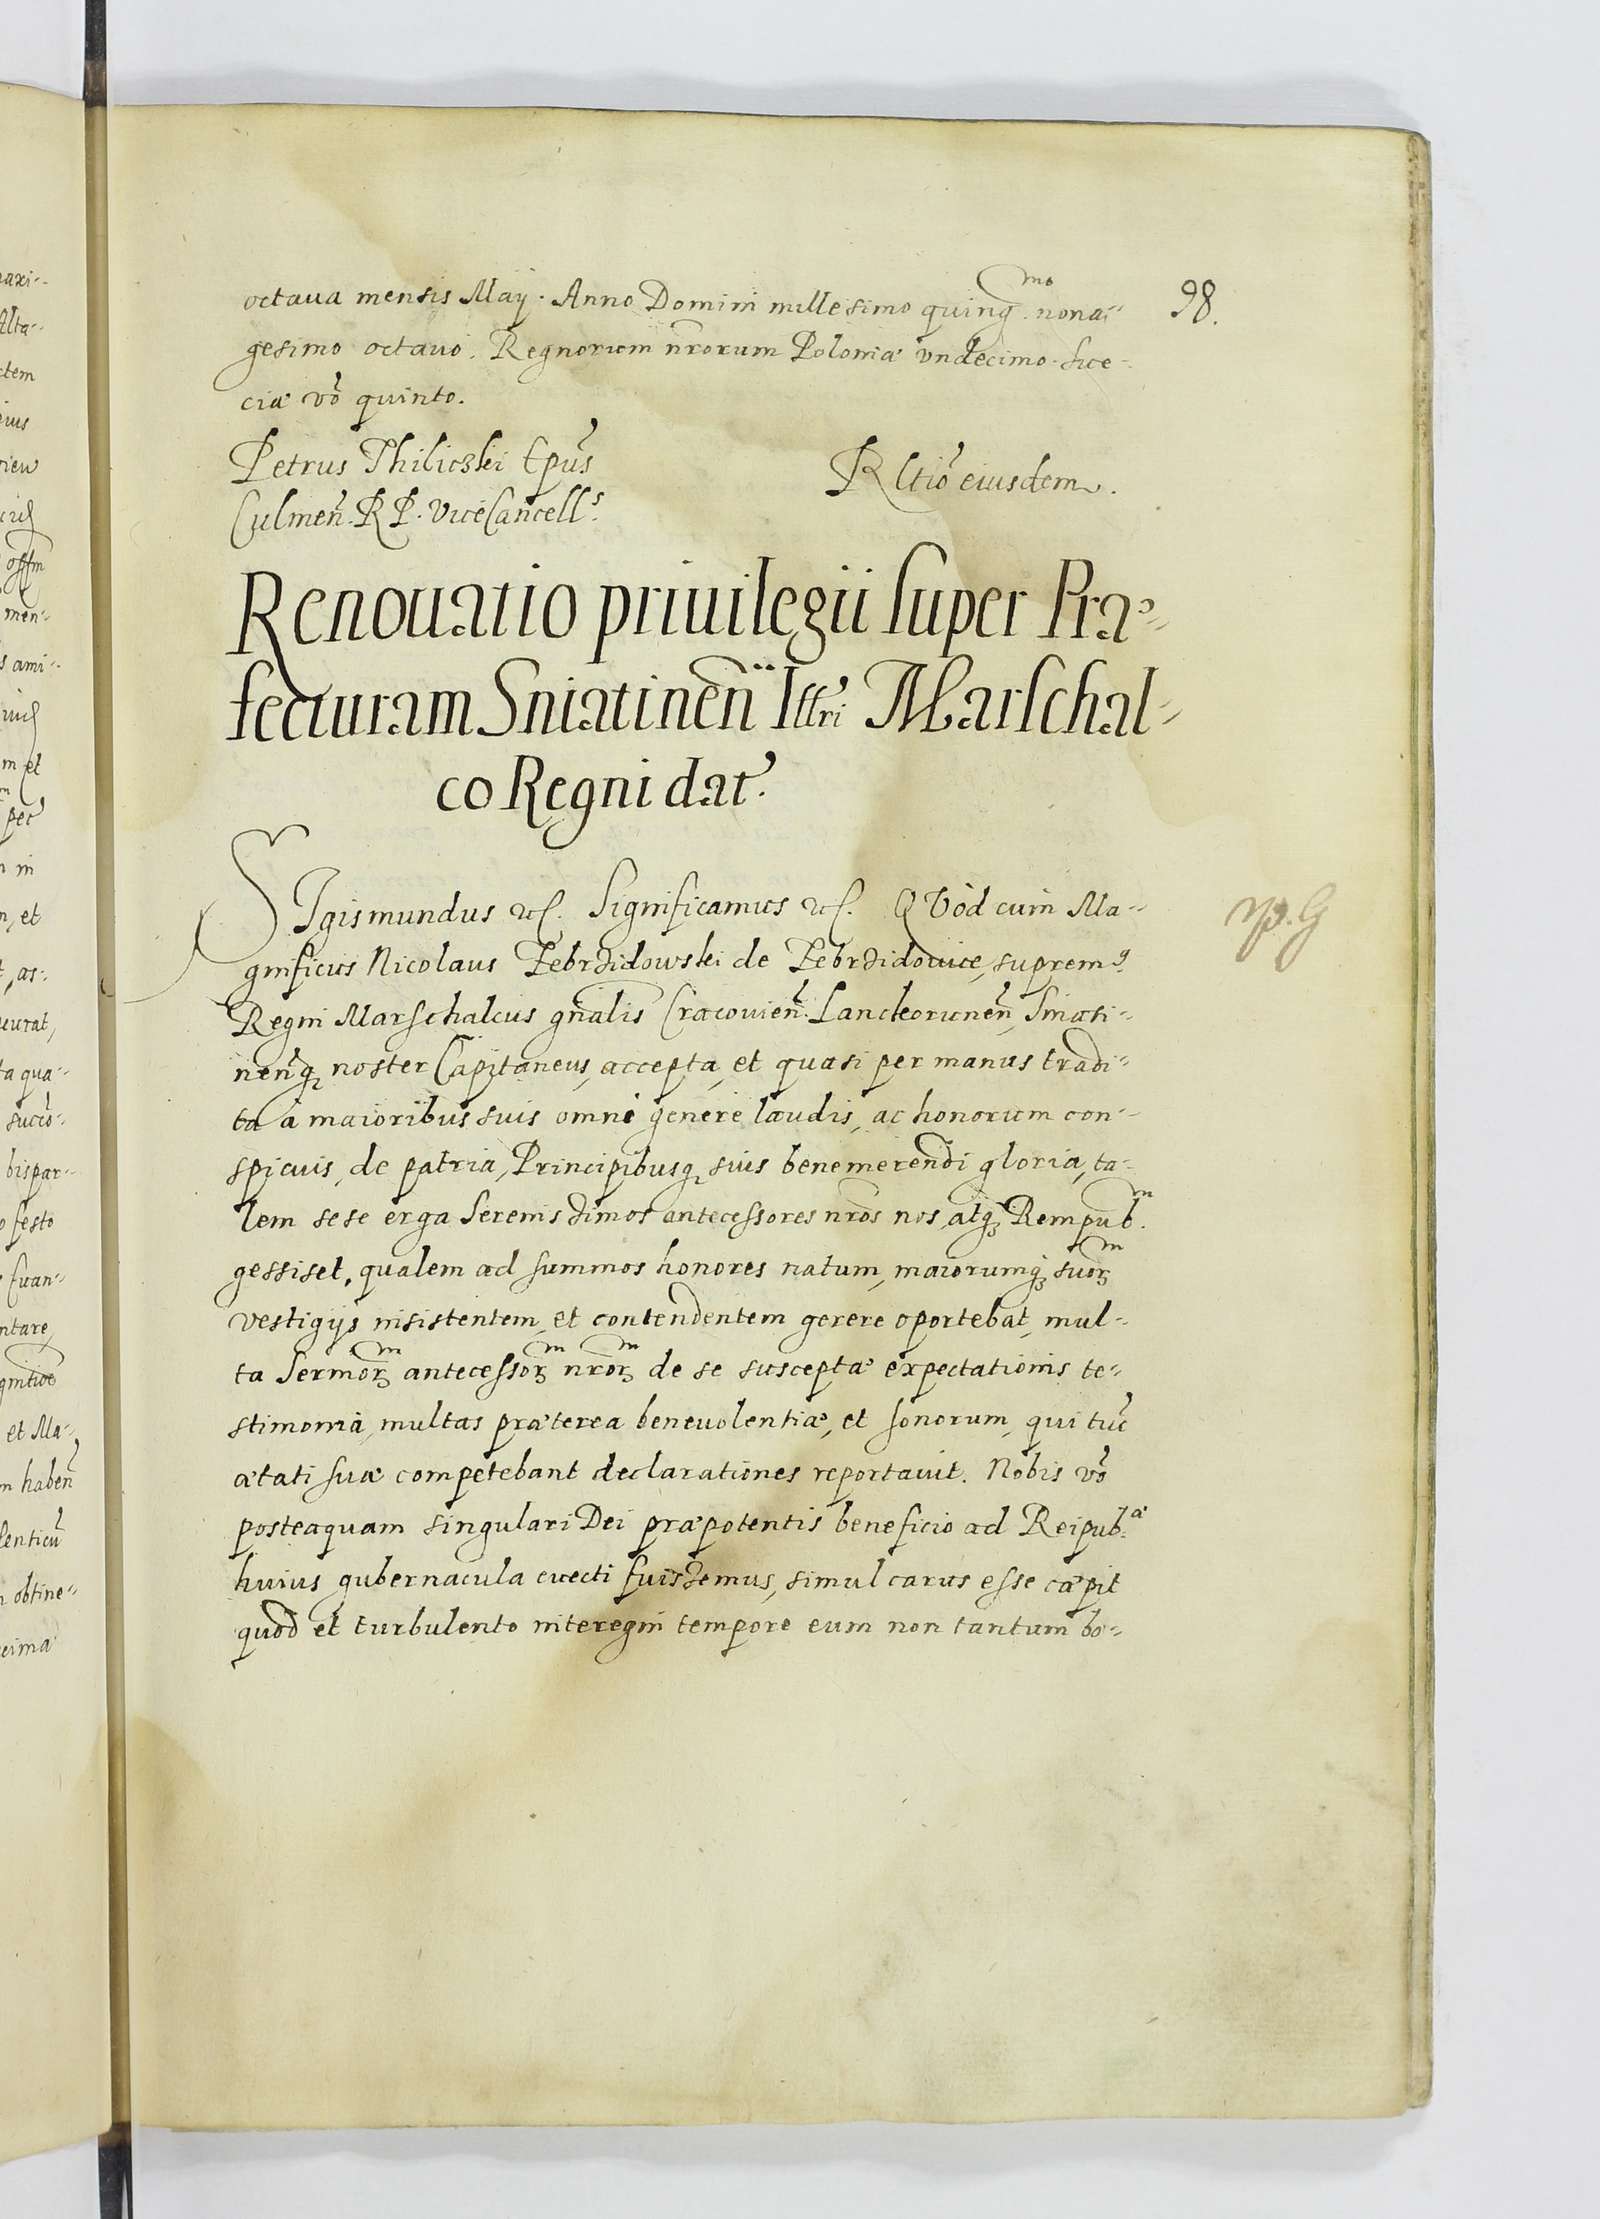 98.
octaua mensis Maÿ. Anno Domini millesimo quing.mo nona-
gesimo octauo. Regnorum nrorum Poloniæ vndecimo. Sue-
ciæ vo quinto.
Petrus Thiliczki Epus
Culmen. R P. ViceCancells.
Rltio eiusdem.
Renouatio priuilegii super Præ-
fecturam Sniatinen Illri Marschal-
co Regni dat.
SIgismundus etc. Significamus etc. QVod cum Ma-
gnificus Nicolaus Zebrzidowski de Zebrzidouice, supremus
Regni Marschalcus gnalis Cracouien. Lanckorunen, Sniati-
nenq noster Capitaneus, accepta, et quasi per manus tradi-
ta a maioribus suis omni genere laudis, ac honorum con-
spicuis, de patria, Principibusq suis benemerendi gloria, ta-
lem sese erga Serenissimos antecessores nros nos, atq Rempub.m
gessiset, qualem ad summos honores natum, maiorumq suorm
vestigijs insistentem, et contendentem gerere oportebat, mul-
ta Sermorm antecessorm nrorm de se susceptæ expectationis te-
stimonia, multas præterea beneuolentiæ, et honorum, qui tuc
ætati suæ competebant declarationes reportauit. Nobis vo
posteaquam singulari Dei præpotentis beneficio ad Reipub.æ
huius gubernacula euecti fuissemus, simul carus esse cæpit
quod et turbulento interegni tempore eum non tantum bo-